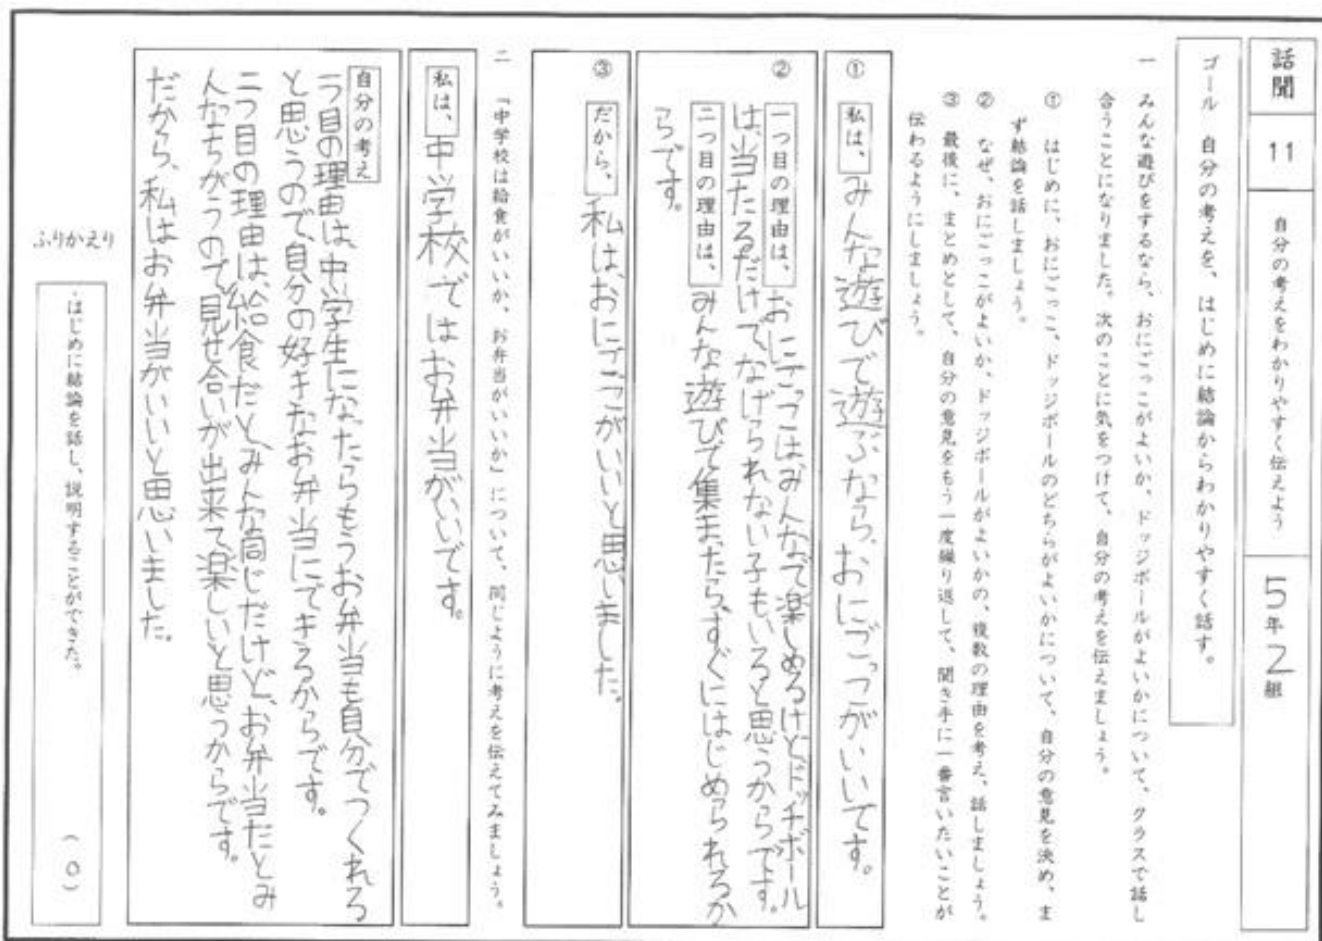 話聞 11 自分の考えをわかりやすく伝えよう 5年2組
ゴール 自分の考えを、はじめに結論からわかりやすく話す。
一 みんな遊びをするなら、おにごっこがよいか、ドッジボールがよいかについて、クラスで話し
合うことになりました。次のことに気をつけて、自分の考えを伝えましょう。
① はじめに、おにごっこ、ドッジボールのどちらがよいかについて、自分の意見を決め、ま
ず結論を話しましょう。
② なぜ、おにごっこがよいか、ドッジボールがよいかの、複数の理由を考え、話しましょう。
③ 最後に、まとめとして、自分の意見をもう一度繰り返して、聞き手に一番言いたいことが
伝わるようにしましょう。
① 私は、みんな遊びで遊ぶなら、おにごっこがいいです。
② 一つ目の理由は、おにごっこはみんなで楽しめるけどドッチボール
は、当たるだけでなげられない子もいると思うからです。
二つ目の理由は、みんな遊びで集まったら、すぐにはじめられるか
らです。
③ だから、私は、おにごっこがいいと思いました。
二 「中学校は給食がいいか、お弁当がいいか」について、同じように考えを伝えてみましょう。
私は、中学校ではお弁当がいいです。
自分の考え
一つ目の理由は、中学生になったらもうお弁当も自分でつくれる
と思うので、自分の好きなお弁当にできるからです。
二つ目の理由は、給食だと、みんな同じだけど、お弁当だとみ
んなちがうので、見せ合いが出来て楽しいと思うからです。
だから、私はお弁当がいいと思いました。
ふりかえり
・はじめに結論を話し、説明することができた。 (○)